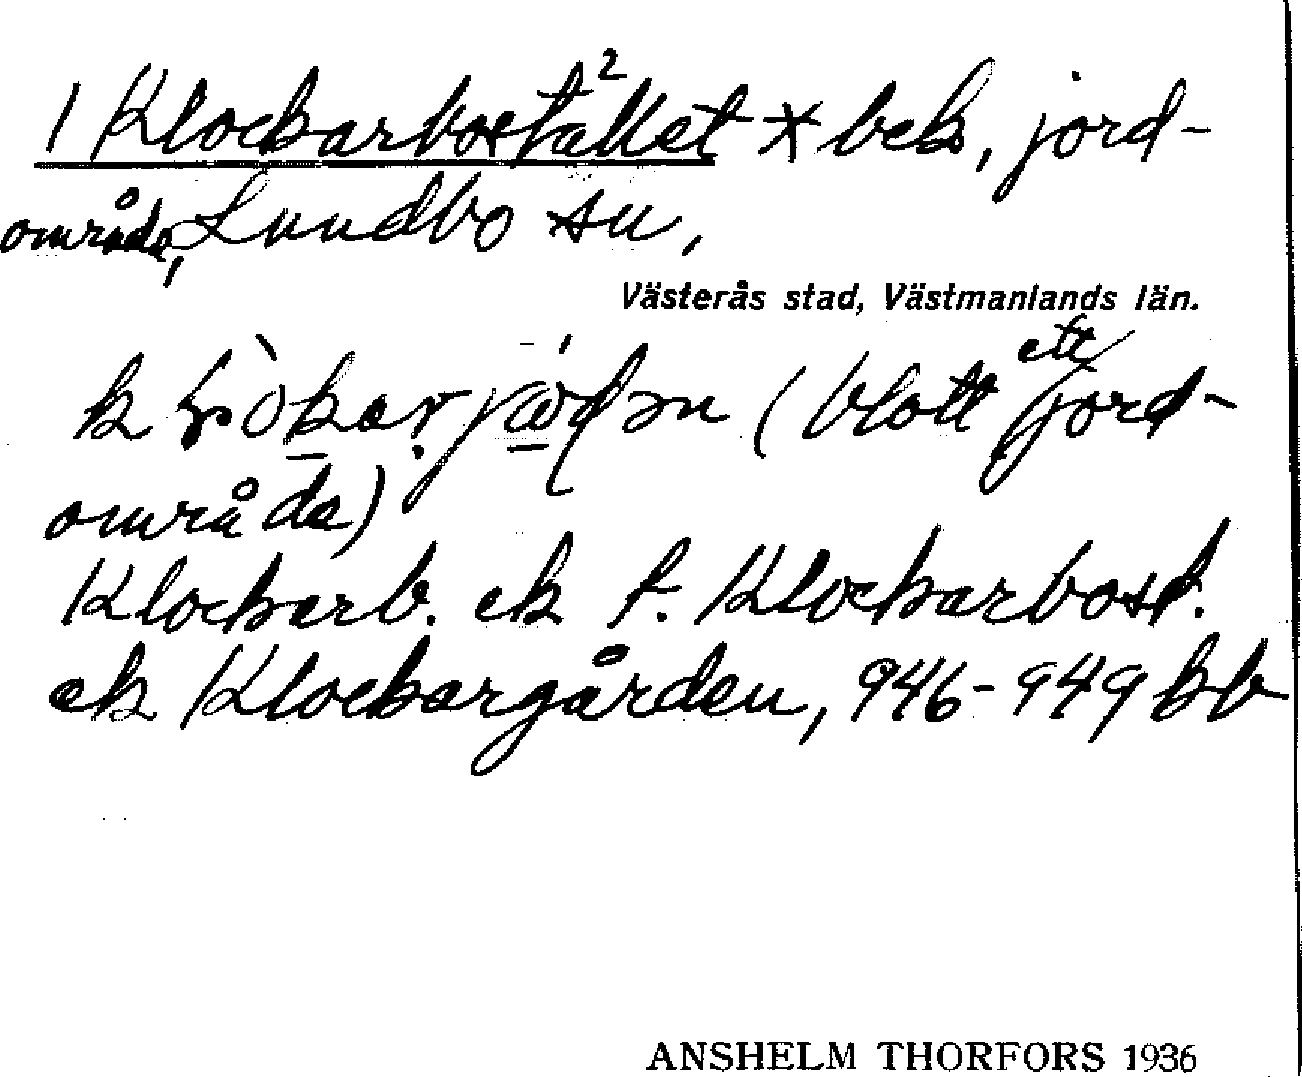 1 Klockarbostället² × bek, jord-
område, Lundbo sn,
Västerås stad, Västmanlands län.
(blott ett jord-
område)
Klockarb. ek f. Klockarbost.
ek Klockargården, 946-949 kb
ANSHELM THORFORS 1936